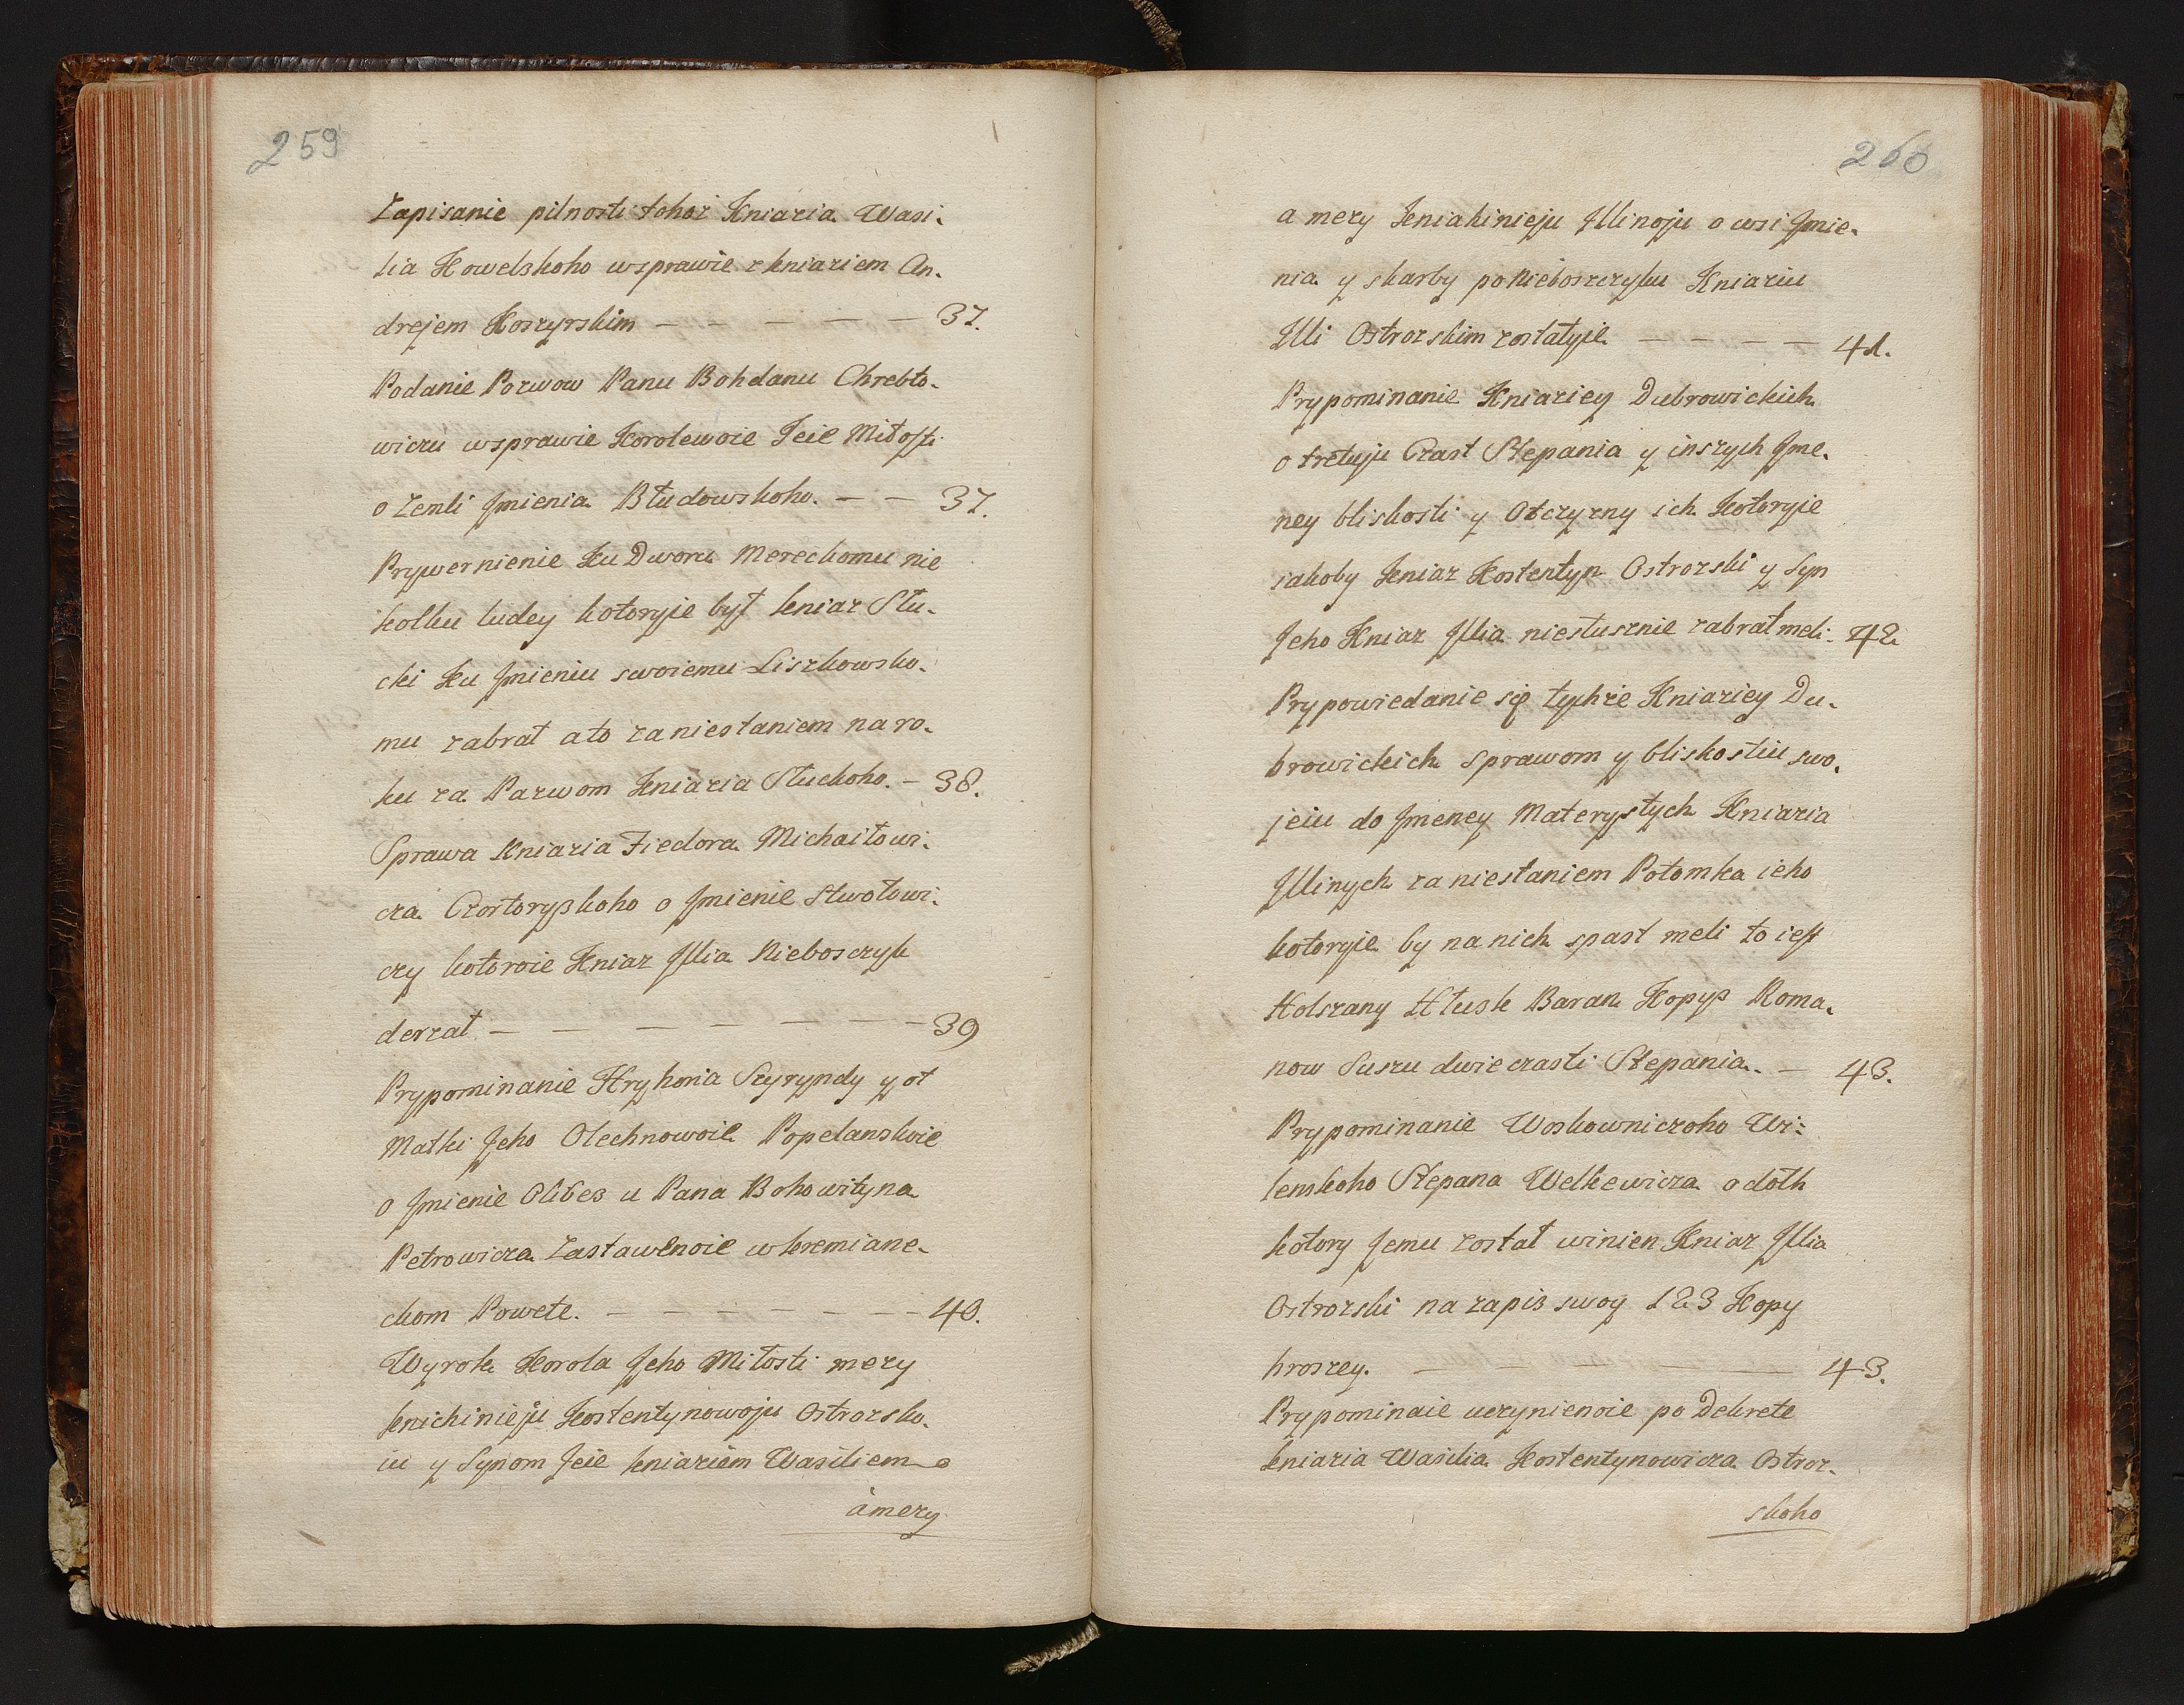 259
Zapisanie pilnosti tohoż Kniazia Wasi-
lia Kowelskoho wsprawie z kniaziem An-
drejem Koszyrskim — — — — — 37.
Podanie Pozwow Panu Bohdanu Chrebto-
wiczu wsprawie Korolewoie Jeie Miłosti
o Zemli Jmienia Błudowskoho. — — 37.
Prywernienie Ku Dworu Mereckomu nie
kolku ludey kotoryie był kniaz Słu-
cki Ku Jmieniu swoiemu Liszkowsko-
mu zabrał a to za niestaniem na ro-
ku za Pazwom Kniazia Słuckoho. — 38.
Sprawa Kniazia Fiedora Michaiłowi-
cza Czortoryskoho o Jmienie Stwołowi-
czy kotoroie Kniaz Jllia Nieboszczyk
derzał — — — — — — — 39
Prypominanie Hryhoria Szyryndy y ot
Matki Jeho Olechnowoie Popelanskoie
o Jmienie Olibes u Pana Bohowityna
Petrowicza Zastawlenoie w kremiane-
ckom Powete. — — — — — — — 40.
Wyrok Korola Jeho Miłosti mezy
knichinieju Kostentynowoju Ostrozsko-
iu y Synom Jeie kniaziem Wasiliem
a mezy
260
a mezy Kniahinieju Jllinoju o wsi Jmie-
nia y skarby po Nieboszczyku Kniaziu
Jlli Ostrozskim zostałyie — — — — 41.
Prypominanie Kniaziey Dubrowickich
o tretuju Czast Stepania y inszych Jme-
ney bliskosti y Otczyzny ich Kotoryie
iakoby Kniaz Kostentyn Ostrozski y Syn
Jeho Kniaz Jllia niesłusznie zabrał meli. 42
Prypowiedanie się tychże Kniaziey Du-
browickich sprawom y bliskostiu swo-
jeiu do Jmeney Materystych Kniazia
Jllinych za niestaniem Potomka ieho
kotoryie by na nich spast meli to iest
Holszany Hłusk Baran Kopys Roma-
now Suszu dwie czasti Stepania. — 43.
Prypominanie Woskowniczoho Wi-
lenskoho Stepana Welkewicza o dołh
kotory Jemu został winien Kniaz Jllia
Ostrozski na zapis swoy 123 Kopy
hroszey. — — — — 43.
Prypominaie uczynienoie po Dekrete
kniazia Wasilia Kostentynowicza Ostroz-
skoho